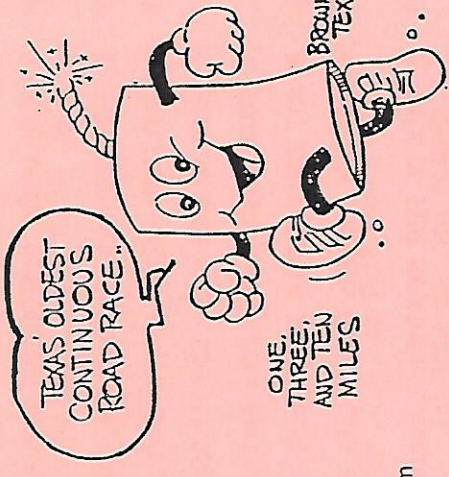 TEXAS' OLDEST
CONTINUOUS
ROAD RACE..
ONE,
THREE,
AND TEN
MILES
BROWN
TEX
m